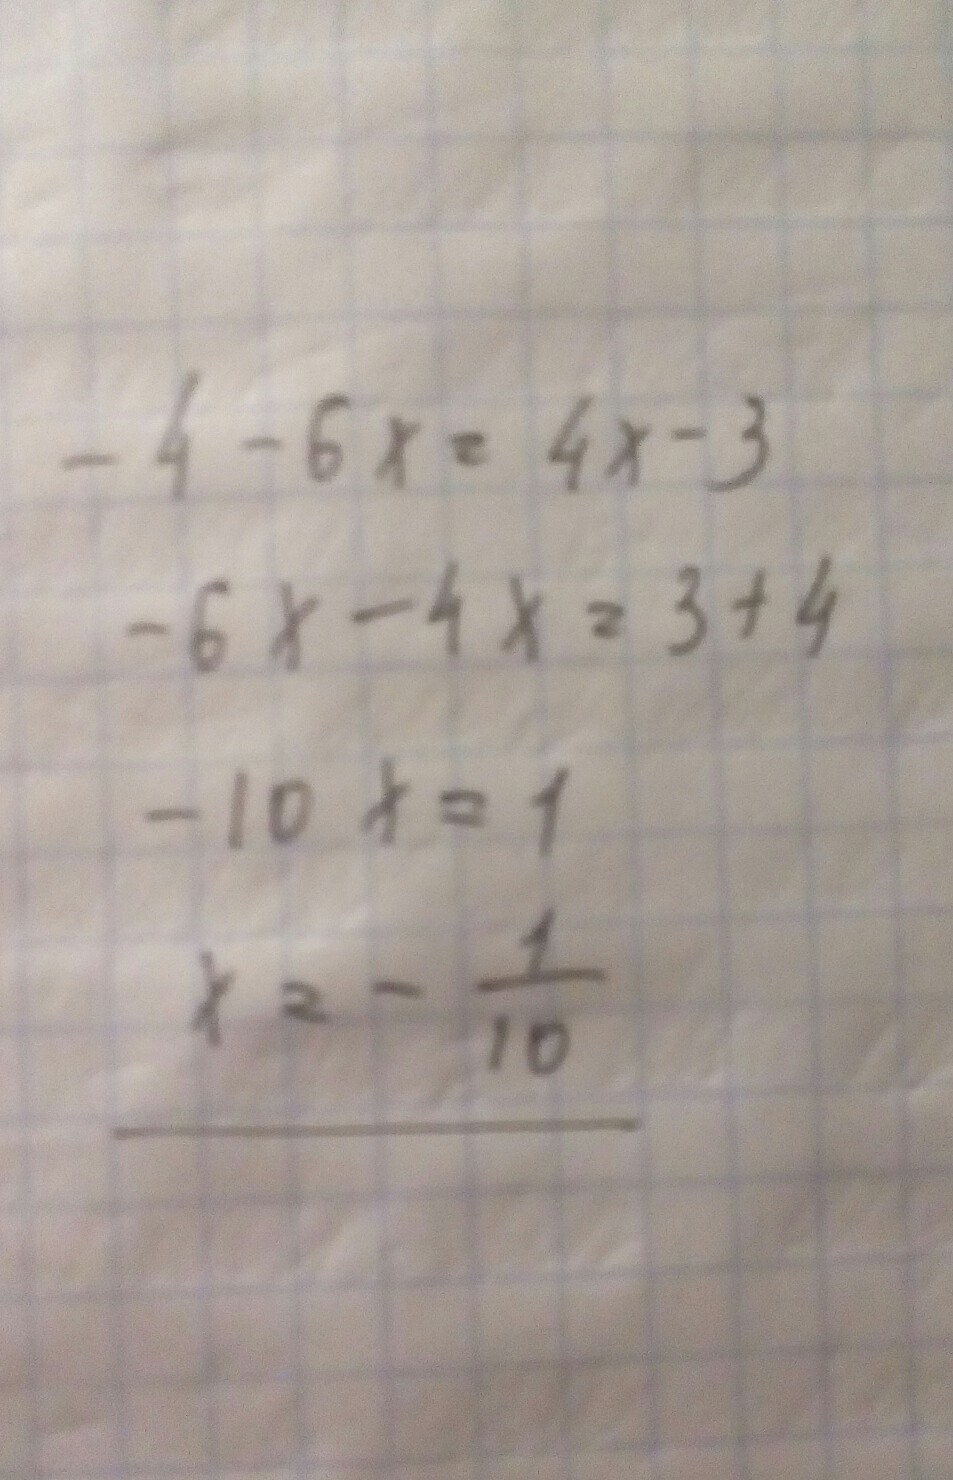 -4-6x=4x-3
-6x-4x=3+4
-10x=1
x=-1/10